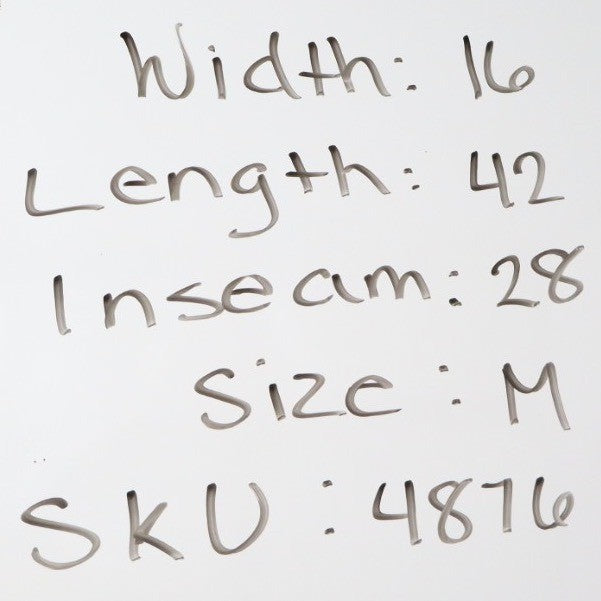 Width: 16
Length: 42
Inseam: 28
Size: M
SKU: 4876